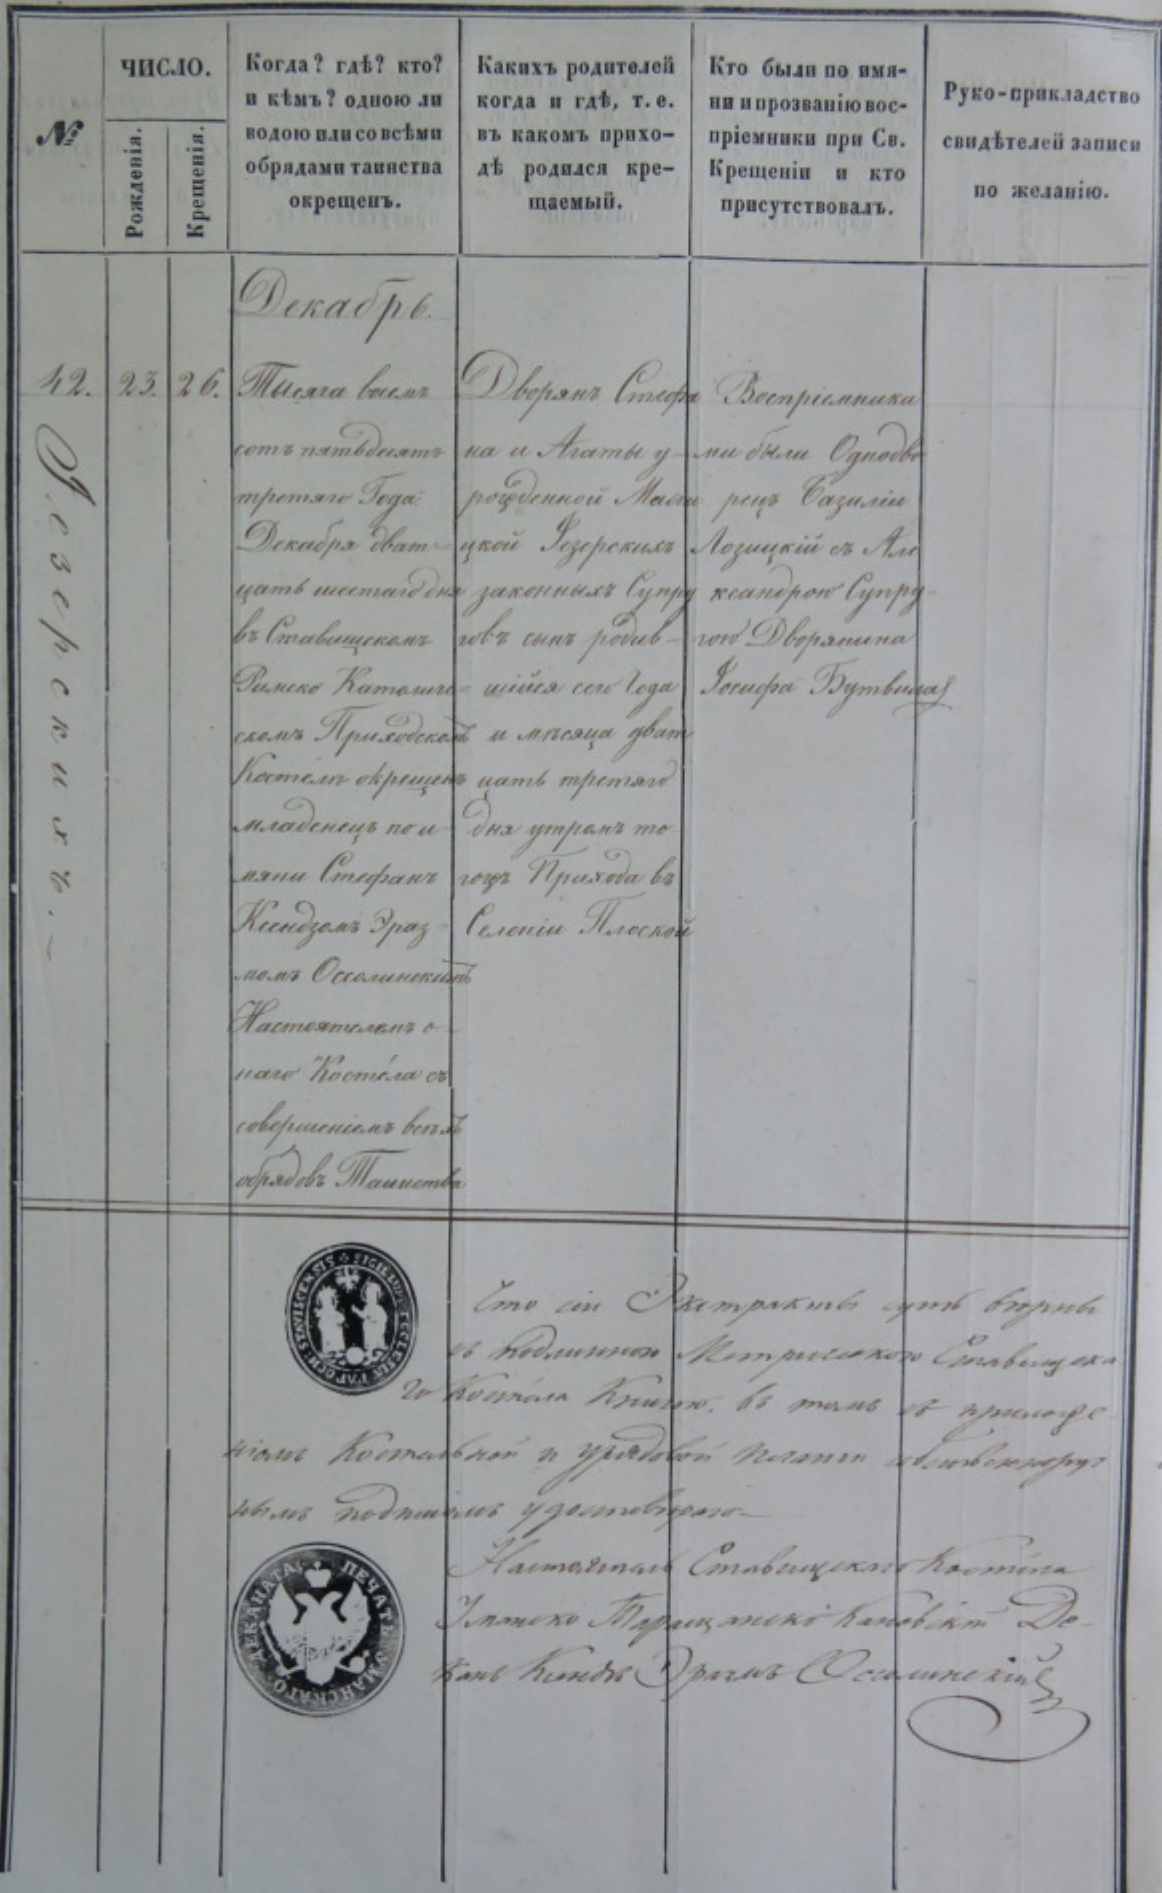 №
ЧИСЛО.
Рожденія.
Крещенія.
Когда? гдѣ? кто?
и кѣмъ? одною ли
водою или со всѣми
обрядами таинства
окрещенъ.
Какихъ родителей
когда и гдѣ, т. е.
въ какомъ прихо-
дѣ родился кре-
щаемый.
Кто были по имя-
ни и прозванію вос-
пріемники при Св.
Крещеніи и кто
присутствовалъ.
Руко-прикладство
свидѣтелей записи
по желанію.
Декабрь.
42. 23. 26.
Іезерскихъ. —
Тысяча восемъ
сотъ пятьдесятъ
третяго Года
Декабря дват-
цать шестаго дня
въ Ставищскомъ
Римско Католиче-
скомъ Приходскомъ
Костелѣ окрещенъ
младенецъ по и-
мяни Стефанъ
Ксендзомъ Эраз-
момъ Оссолинскимъ
Настоятелемъ о-
наго Костёла съ
совершеніемъ всѣхъ
обрядовъ Таинства
Дворянъ Стефа
на и Агаты у-
рожденной
цкой Іезерскихъ
законныхъ Супру
говъ сынъ родив-
шійся сего Года
и мѣсяца дват
цать третяго
дня утромъ то-
гожъ Прихода въ
Селеніи Плоской
Воспріемника
ми были Однодво
рецъ Базилій
Лозицкій съ Але
ксандрою Супру-
гою Дворянина
Іосифа Бутвила
SIGILLUM ECCLESIÆ PAROCH: STAVISCENSIS
Что сіи Экстракты суть вѣрны
съ подлинною Метрическою Ставищска
го Костёла Книгою, въ томъ съ приложе-
ніемъ Костельной и урядовой печати собственноруч
нымъ подписомъ удостовѣряю —
ПЕЧАТЬ УМАНСКАГО ДЕКАНАТА
Настоятель Ставищскаго Костёла
Уманско Таращанскій Де-
канъ Ксендзъ Эразмъ Оссолинскій